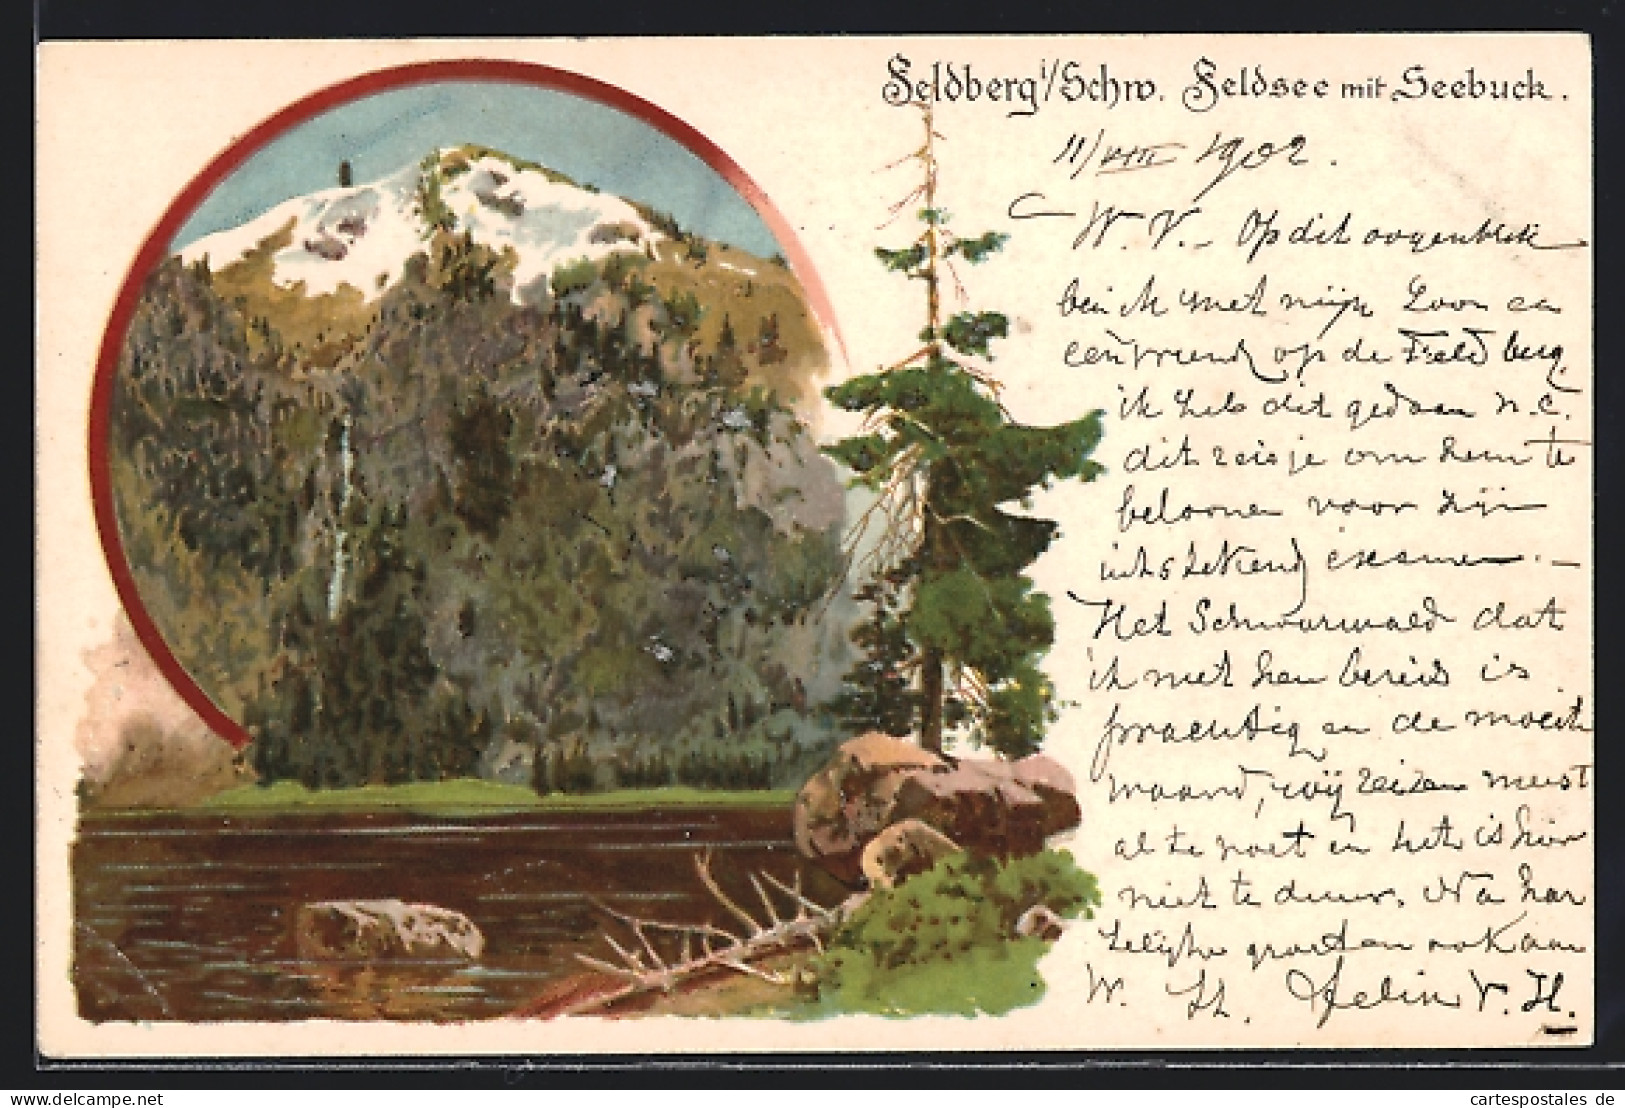 Feldberg i/Schw. Feldsee mit Seebuck.
11/VIII 1902.
W. V. – Op dit oogenblik
ben ik met mijn Zoon en
een vriend op de Feldberg.
ik heb dit gedaan n.l.
dit reisje om hem te
beloonen voor zijn
uitstekend examen. –
Het Schwarzwald dat
ik met hen bereis is
prachtig en de moeite
waard, wij reizen meest
al te voet en het is hier
niet te duur. Na har
telijke groeten ook aan
W. Felix V. H.
© cartespostales.de
cartespostales de